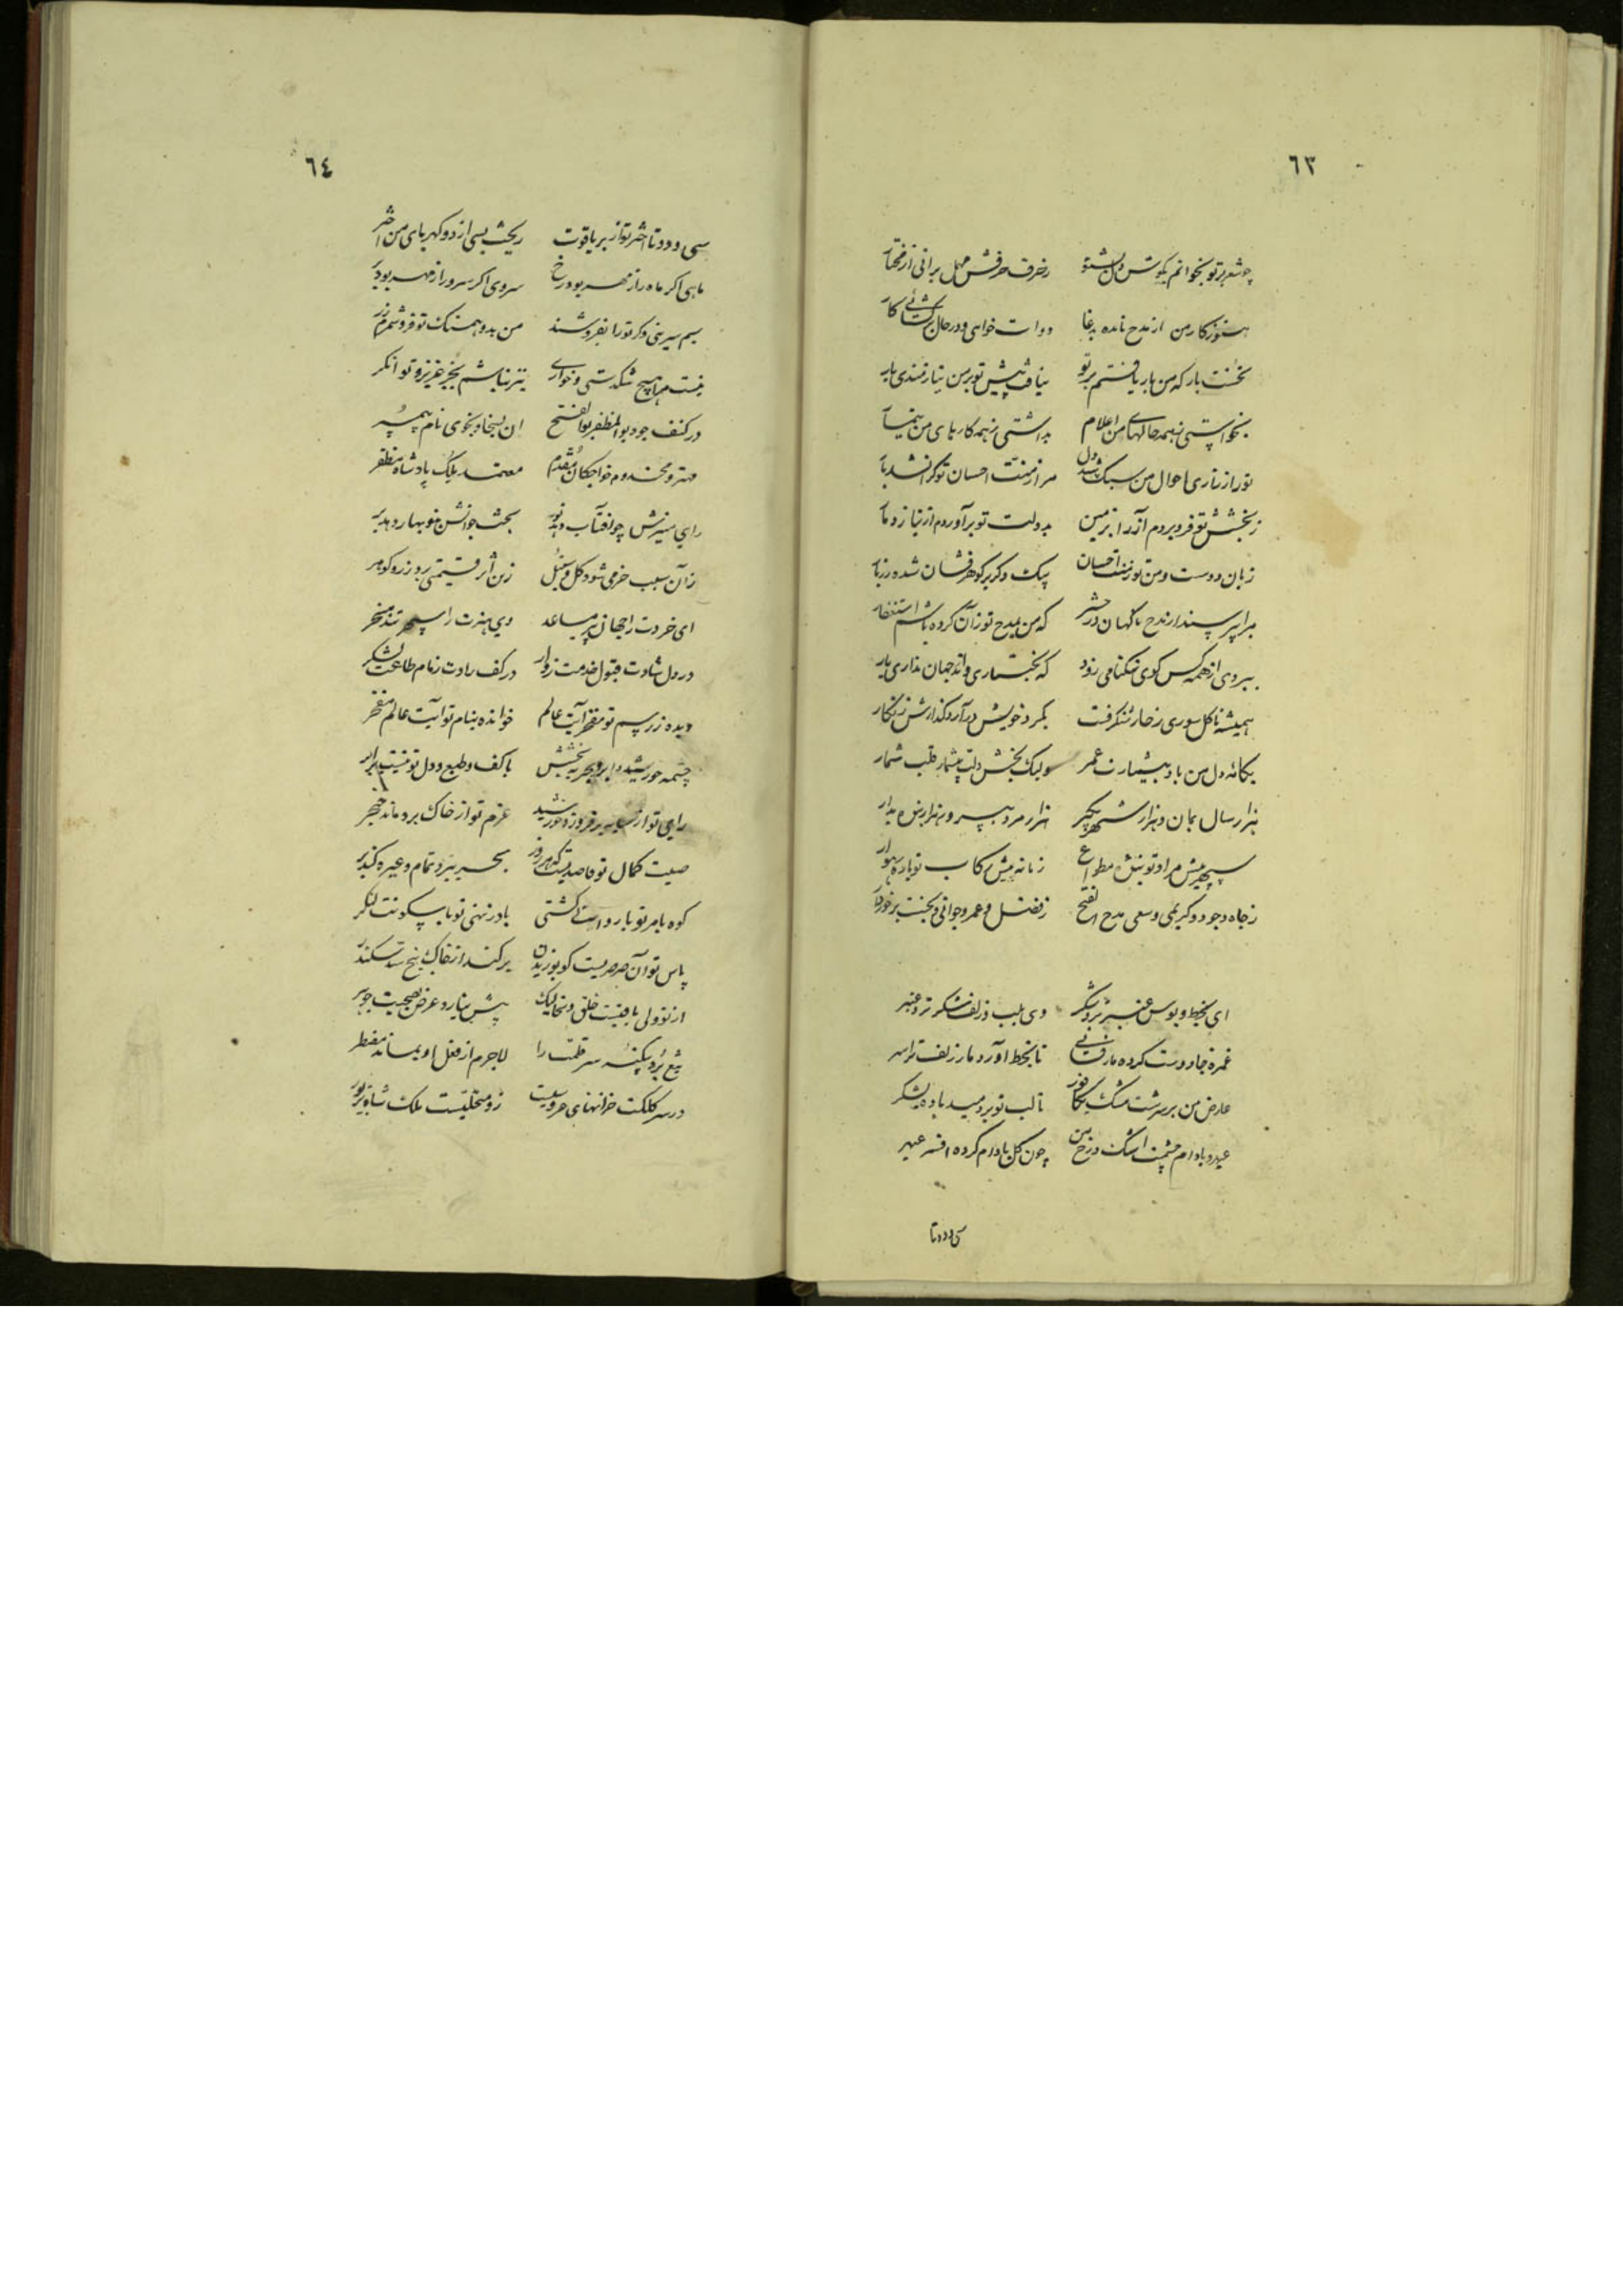 ٦٣
چو شعر بر تو بخوانم بگوش دل بشنو زخرف حرفش مهمل برانی از فتخار
هنوز کار من از مدح نامده بدعا دوات خواهی و در حال برگشائی کار
نخست بار که من بار یافتم بر تو نیافت پیش تو بر من نیازمندی بار
بخواستی ز همه حالهای من اعلام بداشتی ز همه کارهای من تیمار
تو را ز تاری احوال من سبک شد دل مرا ز منت احسان تو گران شد بار
ز بخشش تو فرو بردم آز را بزمین بدولت تو برآوردم از نیاز دمار
زبان دوست و من تو ز منت احسان یک دگر بر گوهرفشان شده زربار
مرا بپرسند از مدح ناگهان در حشر که من بمدح تو زان کرده باشم استغفار
ببردی از همه کس گوی نیکنامی زود که بختیاری و اندر جهان نداری یار
همیشه تا گل سوری ز خار نگرفت بگرد خویش درآرد گذارش زنگار
یگانه دل من باد بیشمارت عمر ولیک بخش دلت بیشمار طلب شمار
هزار سال بمان و هزار شهر بگیر هزار مرد بپرور هزار بنده بدار
سپهر پیش مراد تو بنده مطواع زمانه پیش رکاب تو باره رهوار
ز جاه وجود و کریمی و سعی مدح الفتح ز فضل و عمر و جوانی و بخت برخوردار
ای بخط و بوس عنبر تر و شکر وی بلب و زلف شکر تر و عنبر
غمزه جادوت کرده مار فسائی تا بخط آورد مار زلف تو را سر
عارض من بر سرشت مشک بکافور تا لب تو بردمید باده بشکر
عبهر و بادام چشمت اشک و رخ من چون گل بادام کرده افسر عبهر
سی و دو تا
٦٤
سی و دو تا اختر تو از بر یاقوت ریخت بسی از دو کهربای من اختر
ماهی اگر ماه را ز مهر بود رخ سروی اگر سرو را ز مهر بود بر
سیم سرینی و گر تو را بفروشند من بدو همسنگ تو فروشم زر
نیست مرا هیچ تنگدستی و خواری نیز نباشم بجز عزیز و توانگر
در کنف جود بوالمظفر بوالفتح آن بسخا و بخوی نام پیمبر
مهتر و مخدوم خواجگان مقدم معتمد ملک پادشاه مظفر
رای منیرش چو آفتاب دهد نور بخت جوانش چو نوبهار دهد بر
زان سبب خرمی شود گل و سنبل زین اثر قیمتی بود زر و گوهر
ای خردت را جهان پیر مساعد وی هنرت را سپهر تند مسخر
در دل شادت قبول خدمت زوار در کف رادت زمام طاعت لشکر
دیده ز رسم تو مفخر آیت عالم خوانده بنام تو آیت عالم مفخر
چشمه خورشید و ابر و بحر ببخشش با کف و طبع و دل تو نیست برابر
رای تو از سایه برفروزد خورشید عزم تو از خاک بردماند خنجر
صیت کمال تو قاصدیست که هر روز بحر ببرد تمام و غیره کند بر
کوه با مر تو بادوار است کشتی باد ز نهی تو با سکونت لنگر
پاس تو آن صرصریست کو بوزیدن برکند از خاک بیخ سد سکندر
از تو ولی یافتست خلق و نه لیک پیش نیارد عرض بصحبت جوهر
تیغ برد یکتنه سر قلمت را لاجرم از فعل او بماند مضطر
در سر کلکت خزانهای حروفیست زو متحلیست ملک شاه بزیور